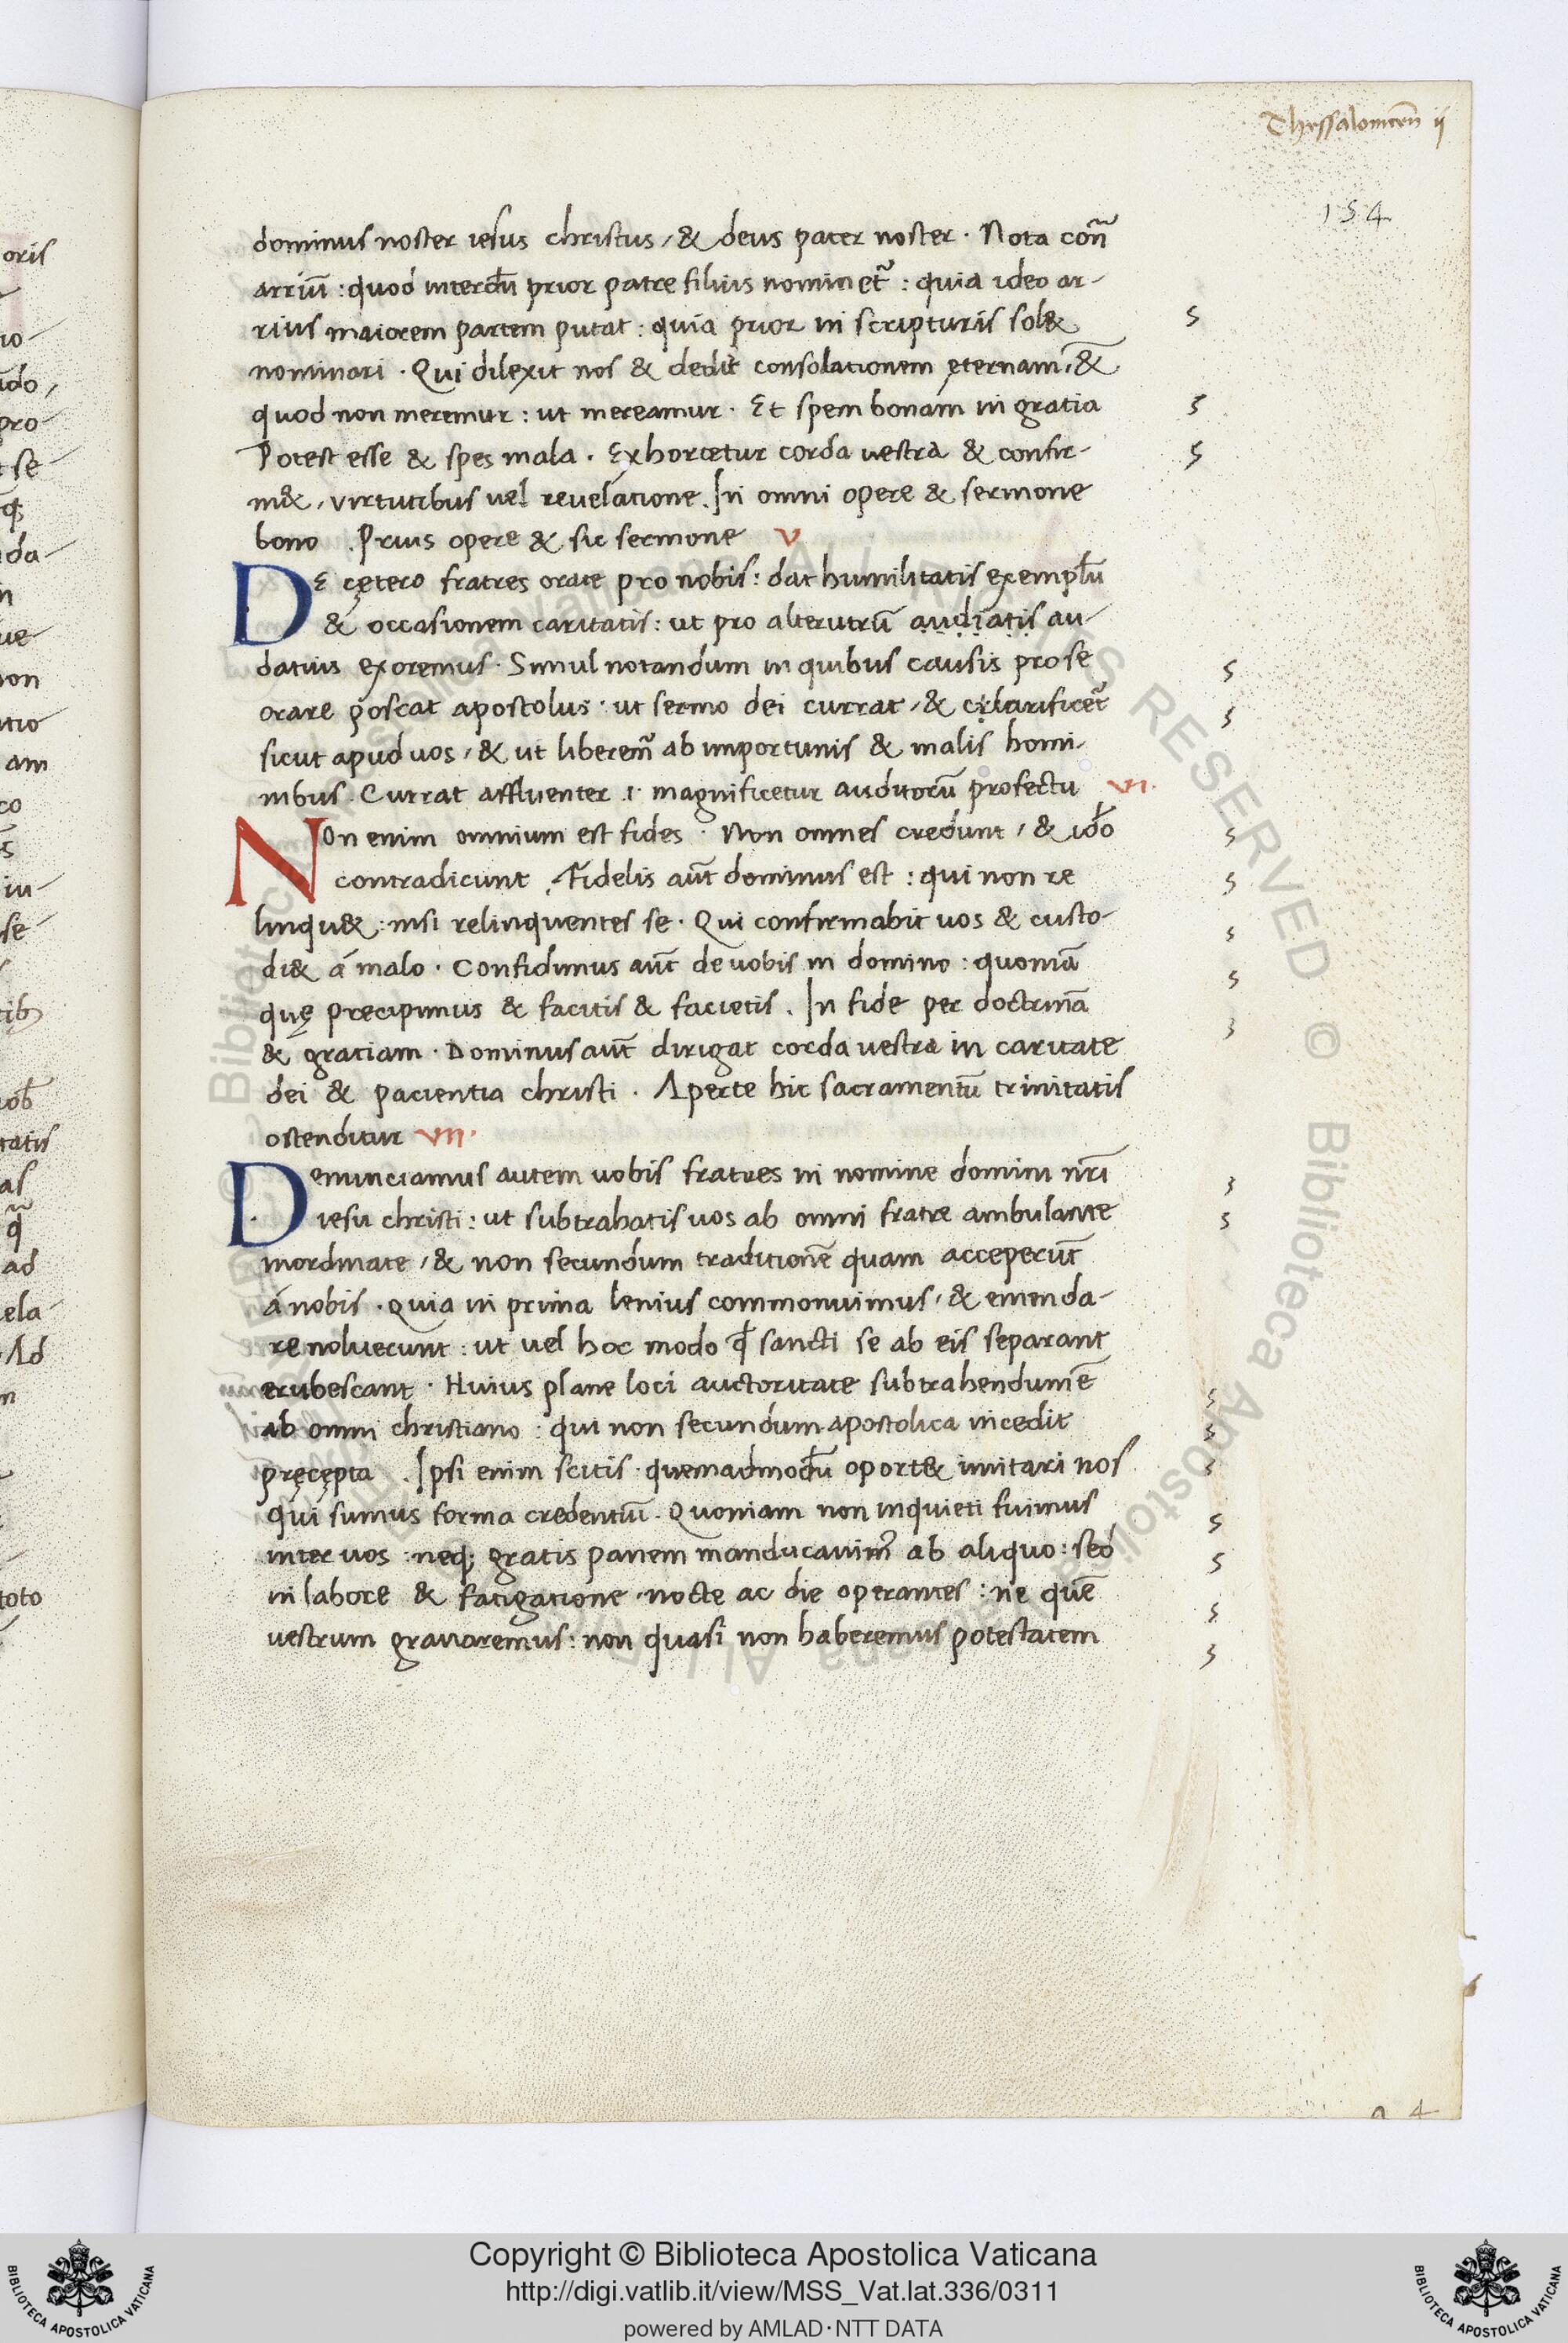 Thessalonicen̄ ii
154
dominus noster iesus christus, & deus pater noster. Nota con̄
arriū: quod interdū prior patre filius nominet᷑: quia ideo ar-
rius maiorem partem putat: quia prior in scripturis sol&
nominari. Qui dilexit nos & dedit consolationem ęternam, &
quod non meremur: ut mereamur. Et spem bonam in gratia
Potest esse & spes mala. Exhortetur corda uestra & confir-
m&, virtutibus uel reuelatione. In omni opere & sermone
bono. Prius opere & sic sermone V
DE cętero fratres orate pro nobis: dat humilitatis exemplū
& occasionem caritatis: ut pro alterutrū audiatis au-
datius exoremus. Simul notandum in quibus causis pro se
orare poscat apostolus. ut sermo dei currat, & clarificet᷑
sicut apud uos, & ut liberem᷑ ab importunis & malis homi-
nibus. Currat affluenter .i. magnificetur auditorū profectu VI.
NOn enim omnium est fides. Non omnes credunt, & idō
contradicunt. Fidelis aūt dominus est: qui non re
linqu& nisi relinquentes se. Qui confirmabit uos & custo-
di& á malo. Confidimus aūt de uobis in domino: quoniā
quę precipimus & facitis & facietis. In fide per doctrinā
& gratiam. Dominus aūt dirigat corda uestra in caritate
dei & pacientia christi. Aperte hic sacramentū trinitatis
ostenditur VII.
Denunciamus autem uobis fratres in nomine domini nr̄i
iesu christi: ut subtrahatis uos ab omni fratre ambulante
inordinate, & non secundum traditionē quam acceperūt
á nobis. Quia in prima lenius commonuimus, & emenda-
re noluerunt: ut uel hoc modo qđ sancti se ab eis separant
erubescant. Huius plane loci auctoritate subtrahendum ē
ab omni christiano: qui non secundum apostolica incedit
pręcepta. Ipsi enim scitis quemadmodū oport& imitari nos
qui sumus forma credentiū. Quoniam non inquieti fuimus
inter uos: neq; gratis panem manducauim᷒ ab aliquo: sed
in labore & fatigatione, nocte ac die operantes: ne quē
uestrum grauaremus: non quasi non haberemus potestatem
Copyright © Biblioteca Apostolica Vaticana
http://digi.vatlib.it/view/MSS_Vat.lat.336/0311
powered by AMLAD·NTT DATA